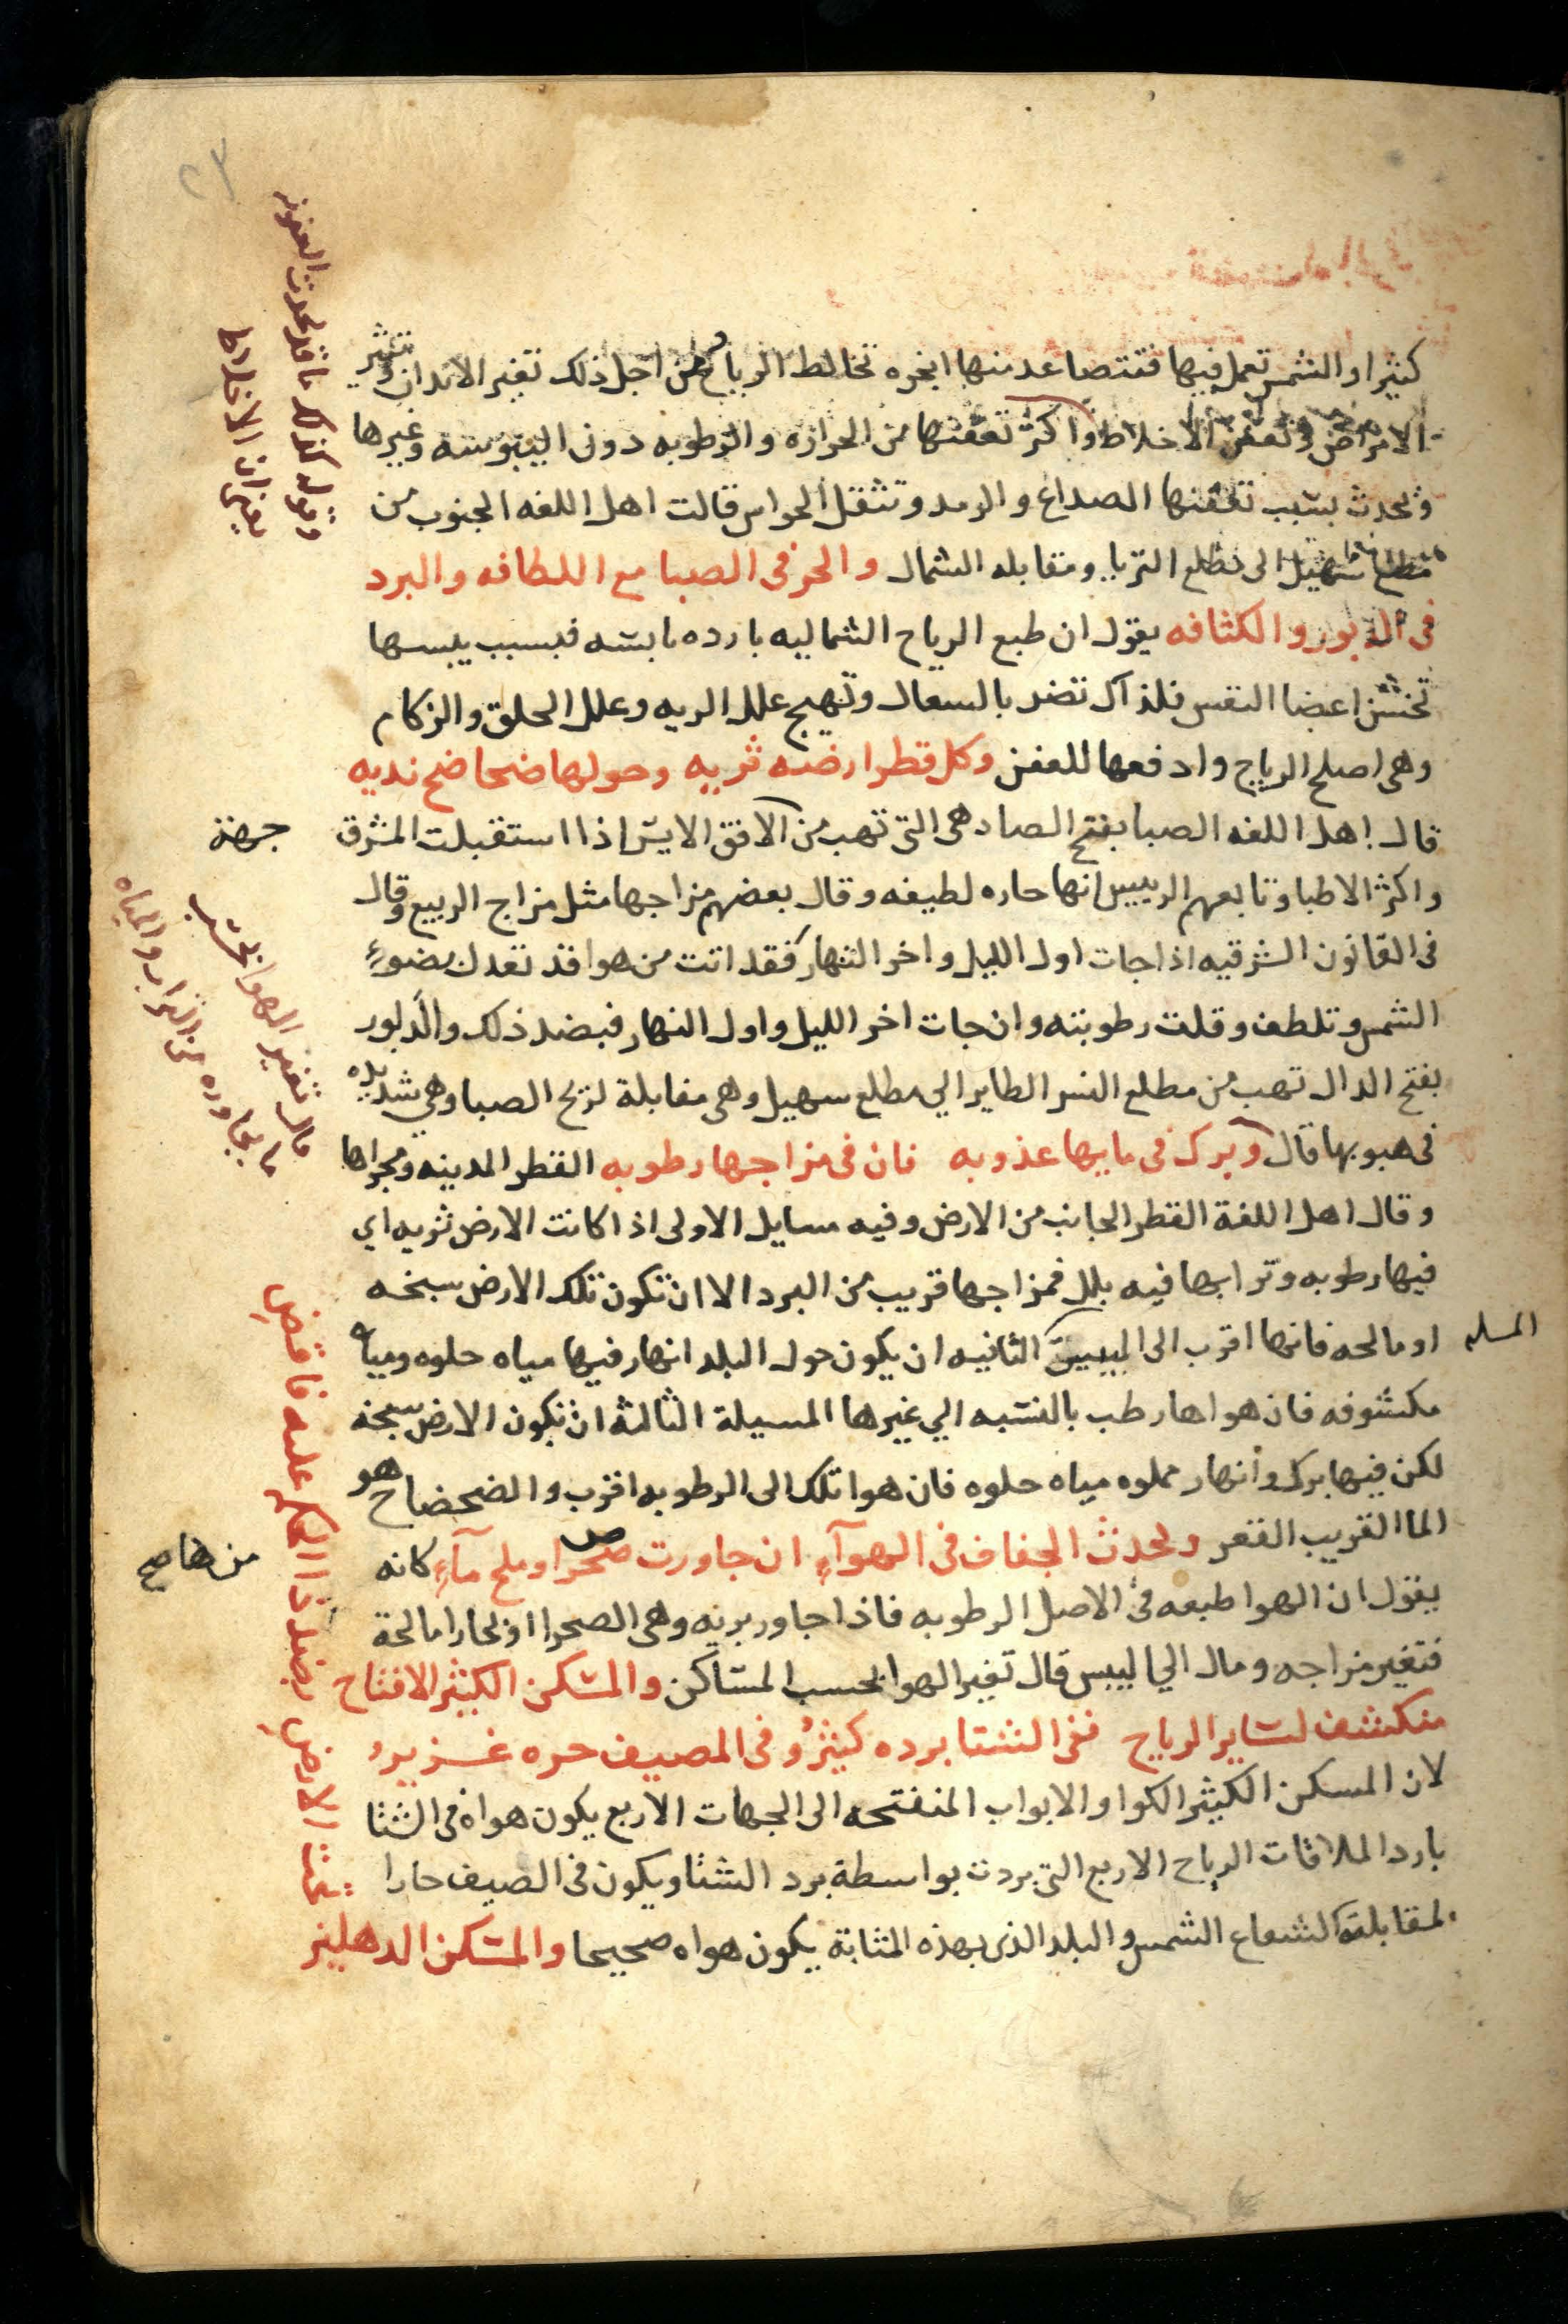 ٢٣
كثيرا والشمس تعمل فيها فتتصاعد منها ابخره تخالط الرياح فمن اجل ذلك تغير الابدان وتثير
الامراض وتعفن الاخلاط واكثر تعفنها من الحرازه والرطوبه دون اليبوسه وغيرها
وتحدث بسبب تعفنها الصداع والرمد وتثقل الحواس قالت اهل اللغه الجنوب من
مطلع سهيل الى مطلع الثريا ومقابله الشمال والحر فى الصبا مع اللطافه والبرد
فى الدبور والكثافه يقول ان طبع الرياح الشماليه بارده يابسه فبسبب يبسها
تخشن اعضا النفس فلذلك تضر بالسعال وتهيج علل الريه وعلل الحلق والزكام
وهى اصلح الرياح وادفعها للعفن وكل قطر ارضه ثريه وحولها ضحاضح نديه
قال اهل اللغه الصبا بفتح الصاد هى التى تهب من الافق الايسر اذا استقبلت المشرق
جهة
واكثر الاطبا وتابعهم الرييس انها حاره لطيفه وقال بعضهم مزاجها مثل مزاج الربيع وقال
فى القانون الشرقيه اذا جات اول الليل واخر النهار فقد اتت من هوا قد تعدل بضوء
الشمس وتلطف وقلت رطوبته وان جات اخر الليل واول النهار فبضد ذلك والدبور
بفتح الدال تهب من مطلع النسر الطاير الي مطلع سهيل وهى مقابلة لريح الصبا وهى شديده
فى هبوبها قال وبرك فى مايها عذوبه فان فى مزاجها رطوبه القطر المدينه ومجراها
وقال اهل اللغة القطر الجانب من الارض وفيه مسايل الاولى اذا كانت الارض ثريه اي
فيها رطوبه وترابها فيه بلل فمزاجها قريب من البرد الا ان تكون تلك الارض سبخه
او مالحه فانها اقرب الى اليبس الثانيه ان يكون حول البلد انهار فيها مياه حلوه ومياه
المسله
مكشوفه فان هواها رطب بالنسبه الي غيرها المسيلة الثالثة ان تكون الارض سبخه
لكن فيها برك وانهار مملوه مياه حلوه فان هوا تلك الى الرطوبه اقرب والضحضاح هو
الما القريب القعر ويحدث الجفاف فى الهوآء ان جاورت صحرا وملح مآء كانه
من هنا صح
يقول ان الهوا طبعه فى الاصل الرطوبه فاذا جاور بريه وهى الصحرا او بحارا مالحة
فتغير مزاجه ومال الي اليبس قال تغير الهوا بحسب المساكن والمسكن الكثير الانفتاح
منكشف لساير الرياح ففى الشتا برده كثير وفى المصيف حره غزير
لان المسكن الكثير الكوا والابواب المنفتحه الى الجهات الاربع يكون هواه فى الشتا
باردا لملاقات الرياح الاربع التى بردت بواسطة برد الشتا ويكون فى الصيف حارا
لمقابلته لشعاع الشمس والبلد الذى بهذه المثابة يكون هواه صحيحا والمسكن الدهليز
وقوله كذلك ما قد يحدث العفونه
يعنى ان الاخلاط
قال تغير الهوا بحسب
ما يجاوره من التراب والمياه
تحت الارض بضد ذا الحكم عليه فاقض